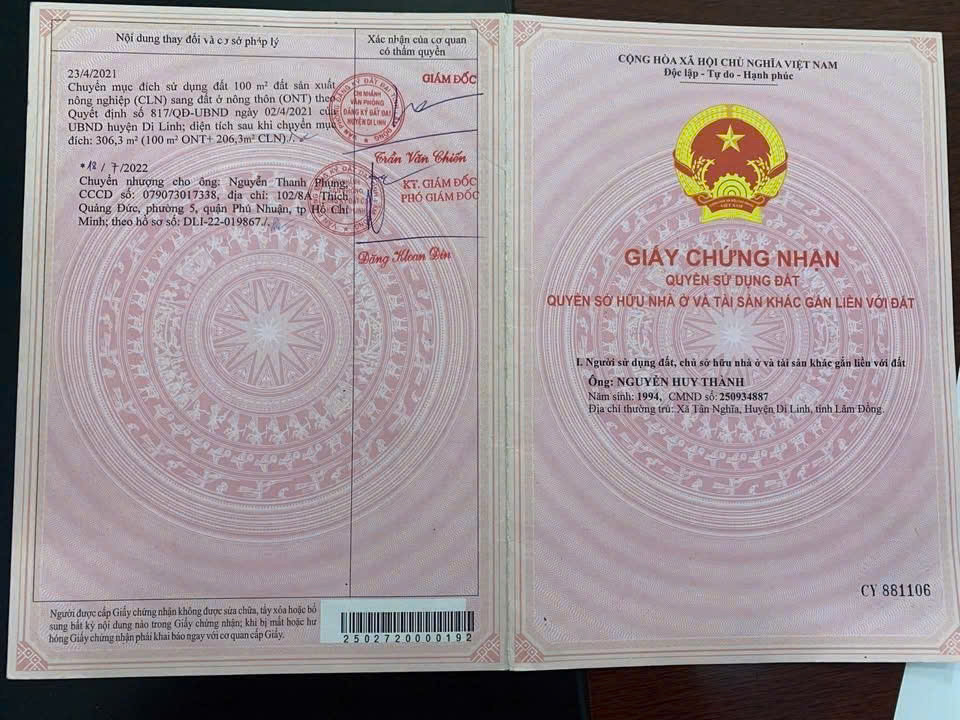 Nội dung thay đổi và cơ sở pháp lý
Xác nhận của cơ quan
có thẩm quyền
23/4/2021
Chuyển mục đích sử dụng đất 100 m² đất sản xuất
nông nghiệp (CLN) sang đất ở nông thôn (ONT) theo
Quyết định số 817/QĐ-UBND ngày 02/4/2021 của
UBND huyện Di Linh; diện tích sau khi chuyển mục
đích: 306,3 m² (100 m² ONT+ 206,3m² CLN)./.
GIÁM ĐỐC
CHI NHÁNH
VĂN PHÒNG
ĐĂNG KÝ ĐẤT ĐAI
HUYỆN DI LINH
Trần Văn Chiến
*18/7/2022
Chuyển nhượng cho ông: Nguyễn Thanh Phụng,
CCCD số: 079073017338, địa chỉ: 102/8A Thích
Quảng Đức, phường 5, quận Phú Nhuận, tp Hồ Chí
Minh; theo hồ sơ số: DLI-22-019867./.
KT. GIÁM ĐỐC
PHÓ GIÁM ĐỐC
Người được cấp Giấy chứng nhận không được sửa chữa, tẩy xóa hoặc bổ
sung bất kỳ nội dung nào trong Giấy chứng nhận; khi bị mất hoặc hư
hỏng Giấy chứng nhận phải khai báo ngay với cơ quan cấp Giấy.
2502720000192
CỘNG HÒA XÃ HỘI CHỦ NGHĨA VIỆT NAM
Độc lập - Tự do - Hạnh phúc
VIỆT NAM
GIẤY CHỨNG NHẬN
QUYỀN SỬ DỤNG ĐẤT
QUYỀN SỞ HỮU NHÀ Ở VÀ TÀI SẢN KHÁC GẮN LIỀN VỚI ĐẤT
I. Người sử dụng đất, chủ sở hữu nhà ở và tài sản khác gắn liền với đất
Ông: NGUYỄN HUY THÀNH
Năm sinh: 1994, CMND số: 250934887
Địa chỉ thường trú: Xã Tân Nghĩa, Huyện Di Linh, tỉnh Lâm Đồng.
CY 881106